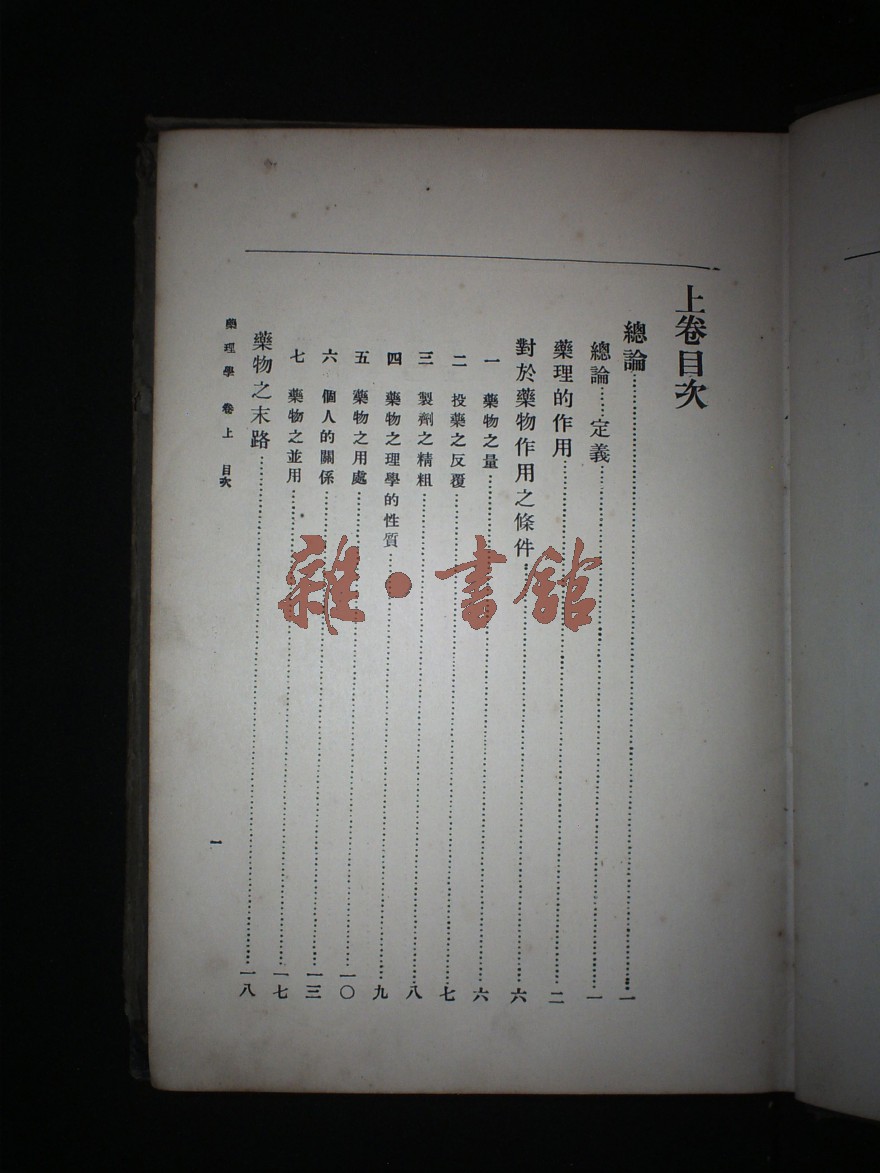 上卷目次
總論……………一
總論……定義……………一
藥理的作用……………二
對於藥物作用之條件……………六
一 藥物之量……………六
二 投藥之反覆……………七
三 製劑之精粗……………八
四 藥物之理學的性質……………九
五 藥物之用處……………一〇
六 個人的關係……………一三
七 藥物之並用……………一七
藥物之末路……………一八
藥理學 卷上 目次
一
雜·書館